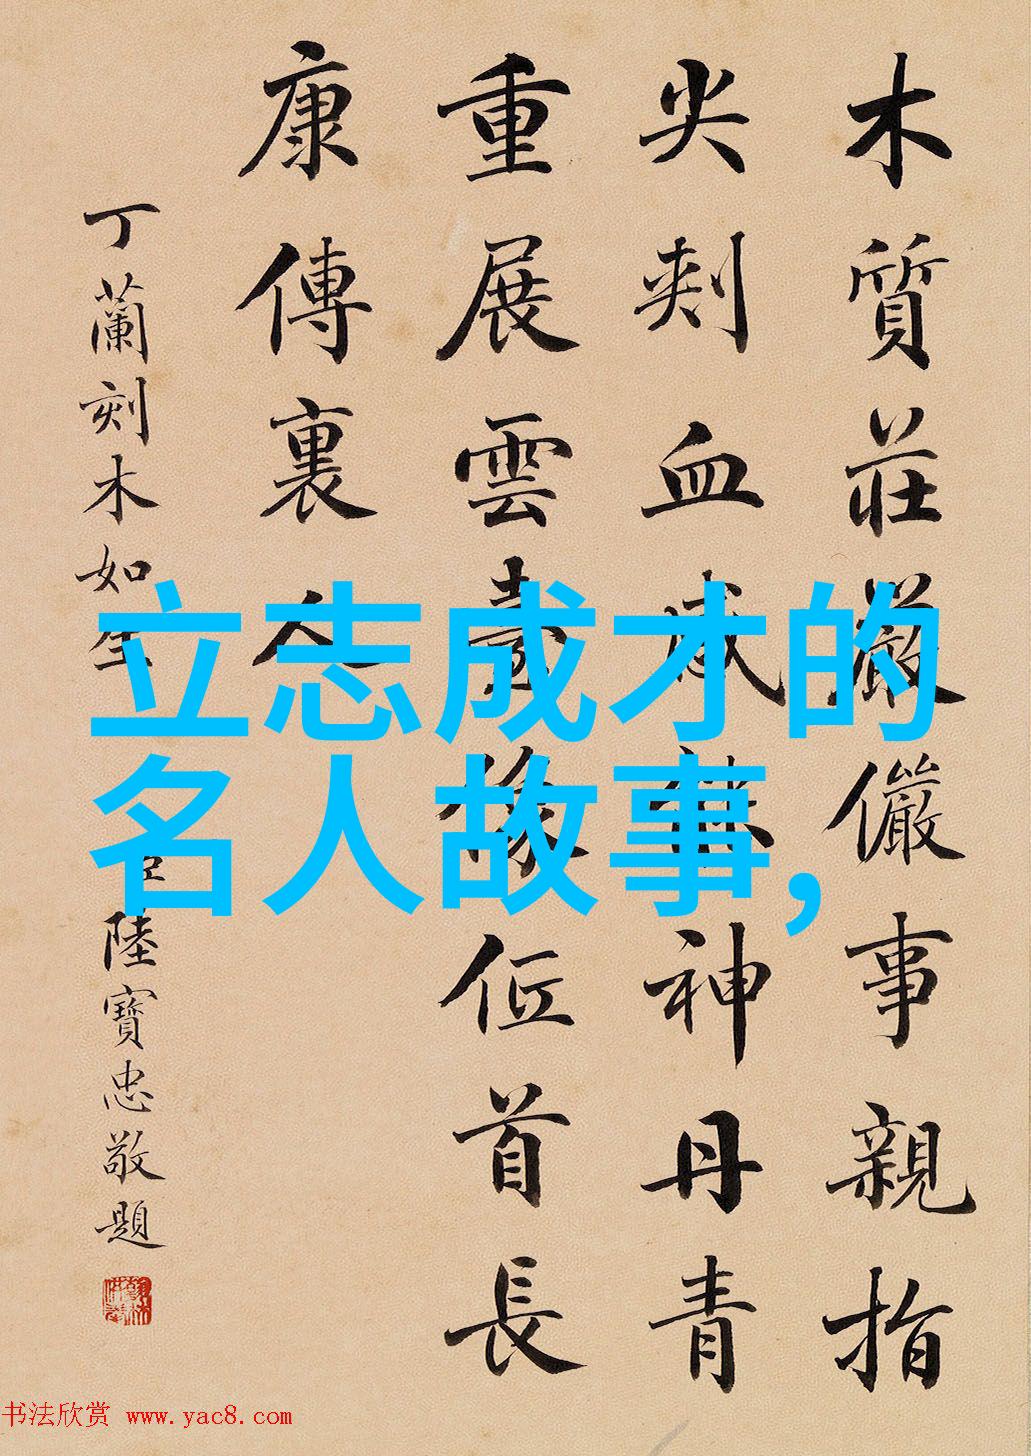 木質莊嚴儼事親指
尖刾血感神丹青
重展雲臺像首長
康傳裏人
丁蘭刻木如生
臣陸寶忠敬題
立志成才的
名人故事,
书法欣赏 www.yac8.com